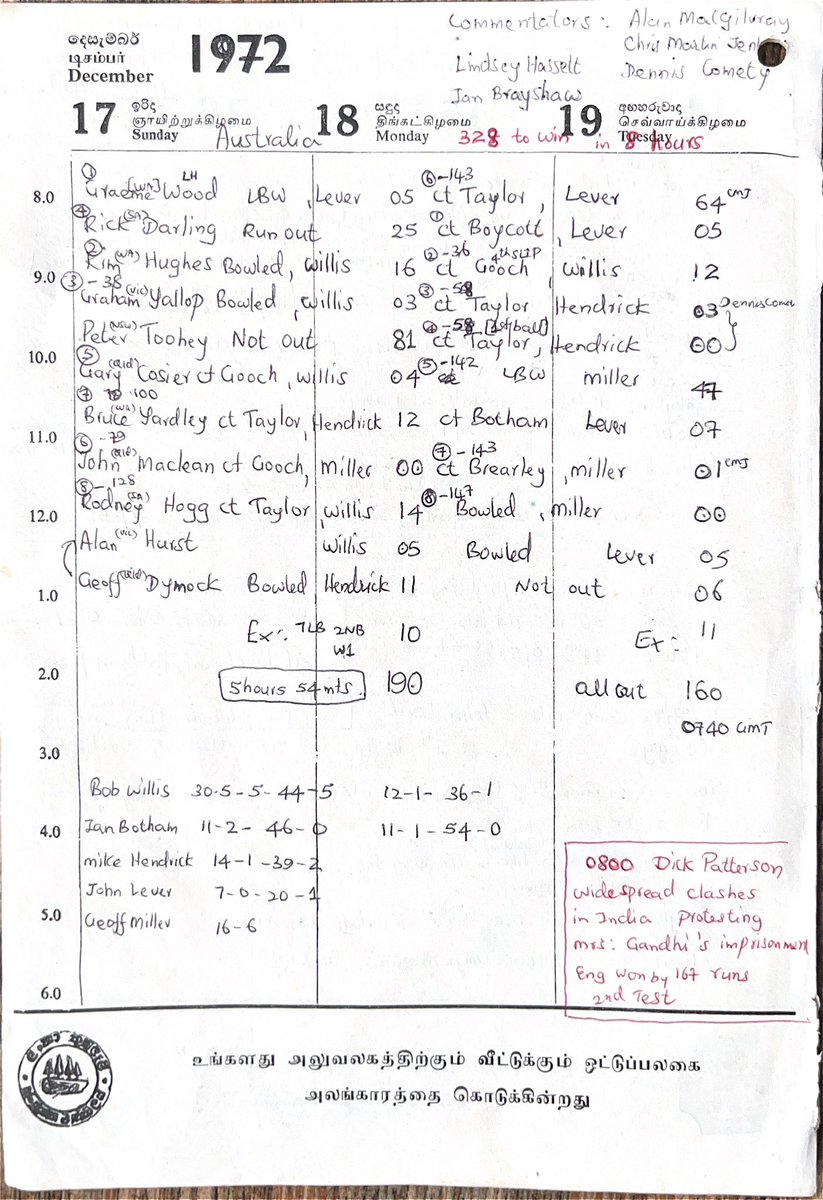 Commentators : Alan McGilvray
දෙසැම්බර් 1972 Chris Martin Jenki
டிசம்பர் Lindsey Hassett Dennis Comety
December Ian Brayshaw
17 ඉරිදා ஞாயிற்றுக்கிழமை Sunday Australia 18 සඳුදා திங்கட்கிழமை Monday 328 to win 19 අඟහරුවාදා செவ்வாய்க்கிழமை Tuesday in 8 Hours
① LH ⑥-143
8.0 Graeme (WA) Wood LBW, Lever 05 ct Taylor, Lever 64 CMJ
④ ①
Rick (SA) Darling Run out 25 ct Boycott, Lever 05
② ②-36 4th SLIP
9.0 Kim (WA) Hughes Bowled, Willis 16 ct Gooch, Willis 12
③-38 ③-58
Graham (Vic) Yallop Bowled, Willis 03 ct Taylor Hendrick 03 Dennis Comet
④-58 [1st ball]
Peter (NSW) Toohey Not out 81 ct Taylor, Hendrick 00
10.0
⑤ ⑤-142
Gary (Qld) Cosier ct Gooch, Willis 04 LBW miller 47
⑦ 100
Bruce (WA) Yardley ct Taylor, Hendrick 12 ct Botham Lever 07
11.0
⑥-79 ⑦-143
John (Qld) Maclean ct Gooch, miller 00 ct Brearley, miller 01 CMJ
⑧-128 ⑧-147
Rodney (SA) Hogg ct Taylor, Willis 14 Bowled, miller 00
12.0
Alan (Vic) Hurst Willis 05 Bowled Lever 05
Geoff (Qld) Dymock Bowled Hendrick 11 Not out 06
1.0
Ex :- 7LB 2NB W1 10 Ex :- 11
2.0 5 hours 54 mts. 190 all out 160
0740 GMT
3.0
Bob Willis 30.5-5-44-5 12-1-36-1
4.0 Ian Botham 11-2-46-0 11-1-54-0
mike Hendrick 14-1-39-2
John Lever 7-0-20-1
5.0 Geoff Miller 16-6
6.0
0800 Dick Patterson
widespread clashes
in India Protesting
mrs: Gandhi's imprisonment
Eng won by 167 runs
2nd Test
உங்களது அலுவலகத்திற்கும் வீட்டுக்கும் ஒட்டுப்பலகை
அலங்காரத்தை கொடுக்கின்றது